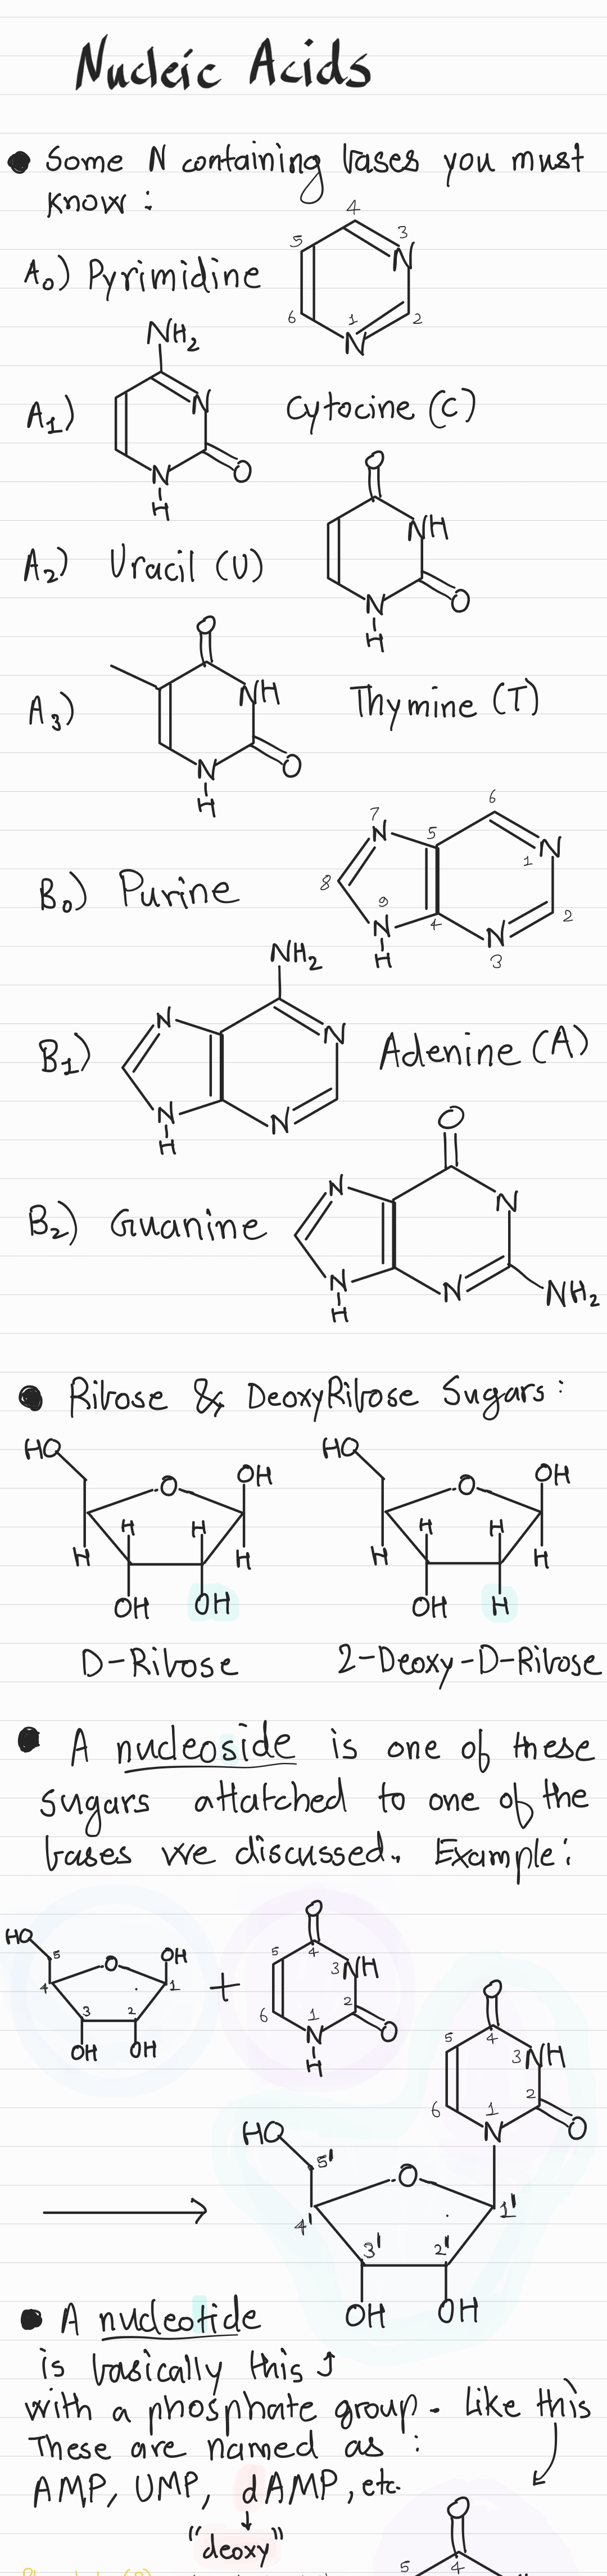 Nucleic Acids
● Some N containing bases you must
know :
4
3
5
N
A₀) Pyrimidine
6
1
2
N
NH₂
N
A₁)
Cytocine (C)
N
O
H
O
NH
A₂) Uracil (U)
N
O
H
O
NH
A₃)
Thymine (T)
N
O
H
6
7
N
5
N
1
8
B₀) Purine
9
N
4
2
N
H
3
NH₂
N
N
B₁)
Adenine (A)
N
N
H
O
N
N
B₂) Guanine
N
N
NH₂
H
● Ribose & DeoxyRibose Sugars :
HO
HO
O
OH
O
OH
H
H
H
H
H
H
H
H
OH
OH
OH
H
D-Ribose
2-Deoxy-D-Ribose
● A nucleoside is one of these
sugars attatched to one of the
bases we discussed. Example :
HO
5
O
OH
4
1
3
2
OH
OH
+
O
5
4
3
NH
6
1
2
N
O
H
O
5
4
3
NH
6
1
2
N
O
HO
5'
O
4'
1'
3'
2'
OH
OH
● A nucleotide
is basically this
with a phosphate group. Like this
These are named as :
AMP, UMP, dAMP, etc.
"deoxy"
O
5
4